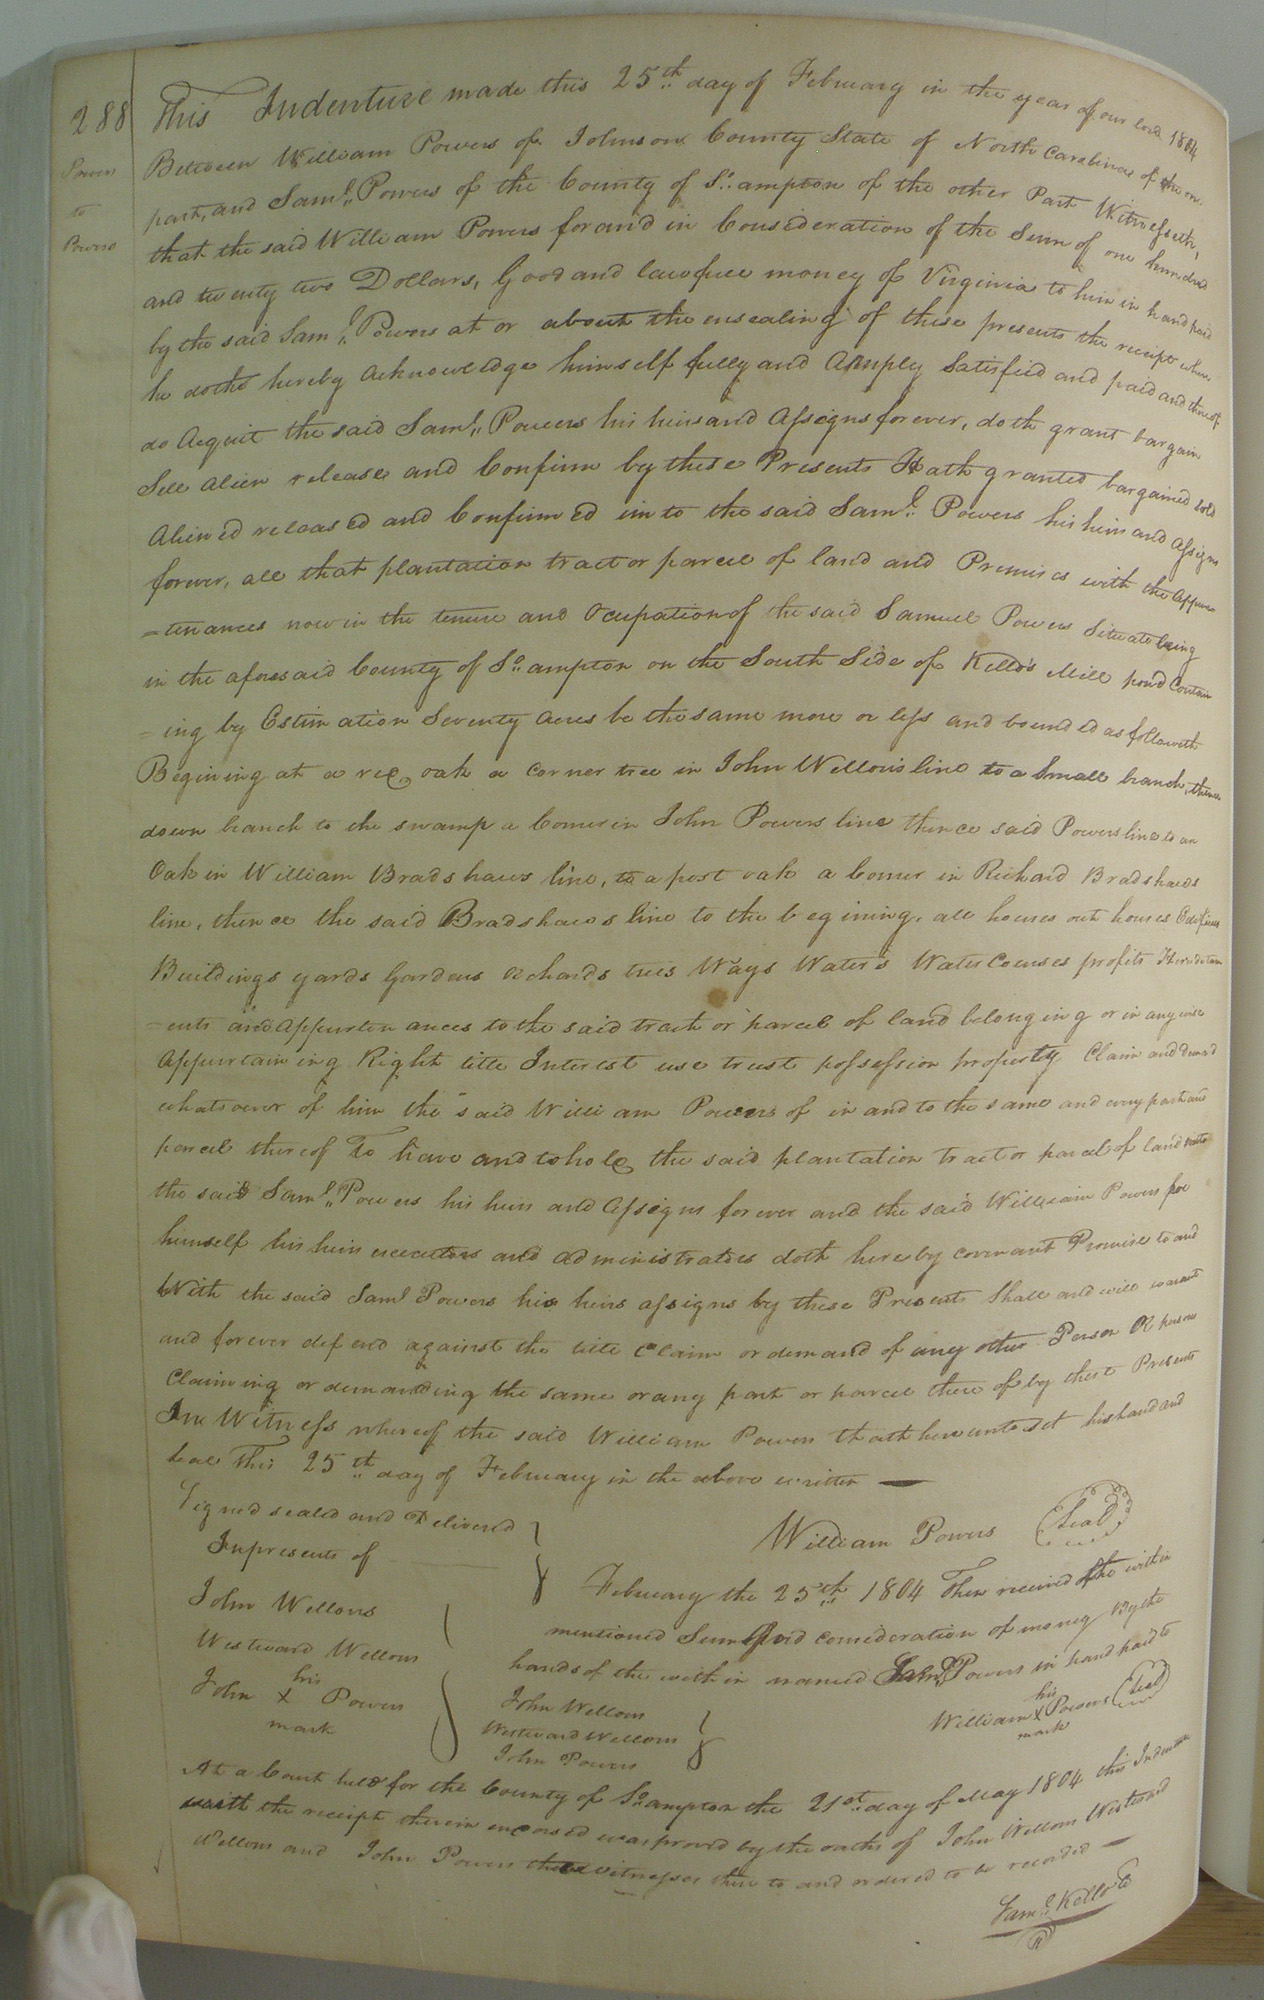 288
Powers
to
Powers
This Indenture made this 25th day of February in the year of our lord 1804
Between William Powers of Johnson County State of North Carolina of the one
part, and Saml. Powers of the County of So. ampton of the other Part Witnesseth,
that the said William Powers for and in Consideration of the Sum of one hundred
and twenty two Dollars, Good and lawfull money of Virginia to him in hand paid
by the said Saml. Powers at or about the ensealing of these presents the receipt where
he doths hereby acknowledge himself fully and Amply Satisfied and paid and thereof
do Acquit the said Saml. Powers his heirs and Assigns forever, doth grant bargain
Sell alien release and Confirm by these Presents Hath granted bargained sold
Aliened released and Confirmed unto the said Saml. Powers his heirs and Assigns
forever, all that plantation tract or parcel of land and Premises with the Appur
=tenances now in the tenure and Ocupation of the said Samuel Powers Situate being
in the aforesaid County of So. ampton on the South Side of Kello's Mill pond Contain
=ing by Estimation Seventy acres be the same more or less and bounded as followeth
Begining at a red oak a corner tree in John Wellons line to a Small branch, thence
down branch to the swamp a Corner in John Powers line thence said Powers line to an
Oak in William Bradshaws line, to a post oak a Corner in Richard Bradshaws
line, thence the said Bradshaws line to the begining, all houses out houses Edifices
Buildings yards Gardens orchards trees Ways Water's Water Courses profits Heriditam
=ents and Appurtenances to the said tract or parcel of land belonging or in any wise
Appurtaining Right title Interest use trust possession property Claim and demand
whatsoever of him the said William Powers of in and to the same and every part and
parcel thereof To have and to hold the said plantation tract or parcel of land unto
the said Saml. Powers his heirs and Assigns forever and the said William Powers for
himself his heirs executors and administrators doth hereby covenant Promise to and
With the said Saml Powers his heirs assigns by these Presents Shall and will warrant
and forever defend against the title claim or demand of any other Person Or persons
Claiming or demanding the same or any part or parcel there of by these Presents
In Witness whereof the said William Powers thath hereunto set his hand and
Seal This 25th day of February in the above written
Signed sealed and Delivered
In presents of
William Powers (Seal)
John Wellons
Westward Wellons
his
John X Powers
mark
February the 25th 1804 Then received of the within
mentioned Sum paid consideration of money By the
hands of the within named Saml. Powers in hand paid to
John Wellons
Westward Wellons
John Powers
his
William X Powers (Seal)
mark
At a Court held for the County of So. ampton the 21st day of May 1804 this Indenture
with the receipt therein endorsed was proved by the oaths of John Wellons Westward
Wellons and John Powers the witnesses there to and ordered to be recorded
Saml. Kello C